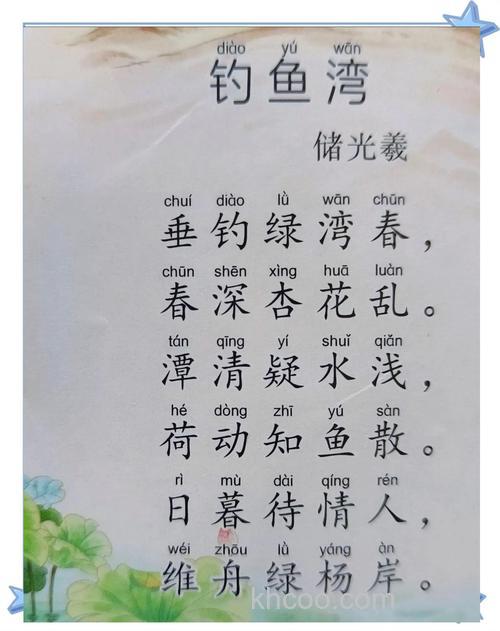 diào yú wān
钓鱼湾
储光羲
chuí diào lǜ wān chūn
垂钓绿湾春，
chūn shēn xìng huā luàn
春深杏花乱。
tán qīng yí shuǐ qiǎn
潭清疑水浅，
hé dòng zhī yú sàn
荷动知鱼散。
rì mù dài qíng rén
日暮待情人，
wéi zhōu lǜ yáng àn
维舟绿杨岸。
khcoo.com